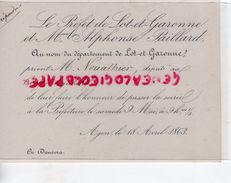 Le Préfet de Lot-et-Garonne
et Mme Alphonse Paillard
Au nom du département de Lot-et-Garonne,
prient M. Noualhier, député au
de leur faire l'honneur de passer la soirée
à la Préfecture le samedi 9 Mai, à 9 h. 1/2
Agen, le 18 Avril 1863.
En Dansera.
GENEALOGIECOLOPAPE